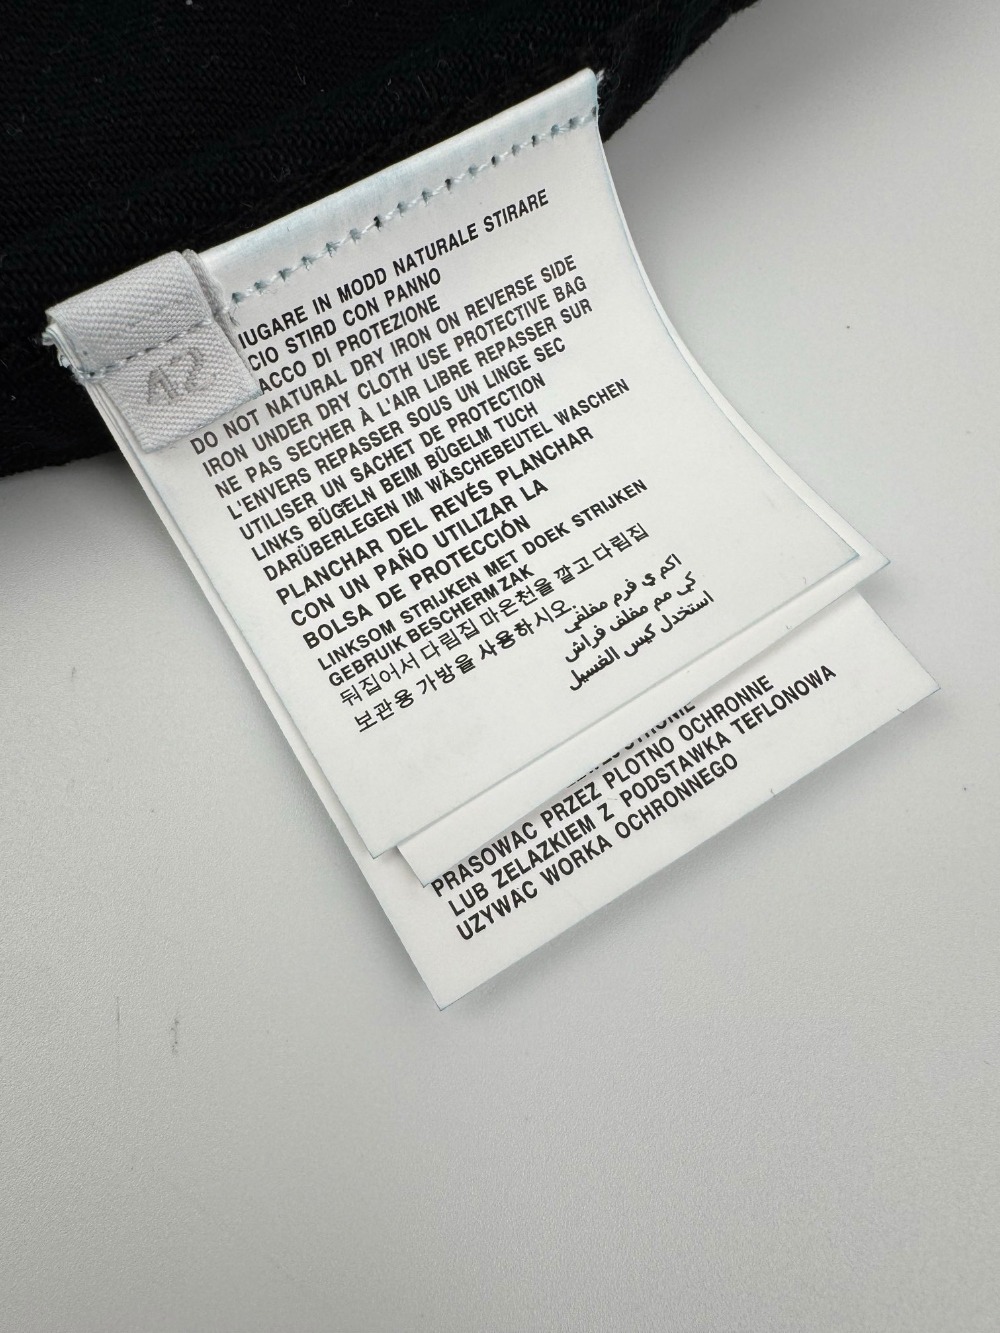 42
IUGARE IN MODD NATURALE STIRARE
CIO STIRD CON PANNO
ACCO DI PROTEZIONE
DO NOT NATURAL DRY IRON ON REVERSE SIDE
IRON UNDER DRY CLOTH USE PROTECTIVE BAG
NE PAS SECHER À L'AIR LIBRE REPASSER SUR
L'ENVERS REPASSER SOUS UN LINGE SEC
UTILISER UN SACHET DE PROTECTION
LINKS BÜGELN BEIM BÜGELM TUCH
DARÜBERLEGEN IM WÄSCHEBEUTEL WASCHEN
PLANCHAR DEL REVÉS PLANCHAR
CON UN PAÑO UTILIZAR LA
BOLSA DE PROTECCIÓN
LINKSOM STRIJKEN MET DOEK STRIJKEN
GEBRUIK BESCHERM ZAK
뒤집어서 다림집 마은천을 깔고 다림집
보관용 가방을 사용하시오.
اكم ي فرم مغلفي
كي مم مغلف فراش
استخدل كيس الغسيل
PRASOWAC PRZEZ PLOTNO OCHRONNE
LUB ZELAZKIEM Z PODSTAWKA TEFLONOWA
UZYWAC WORKA OCHRONNEGO